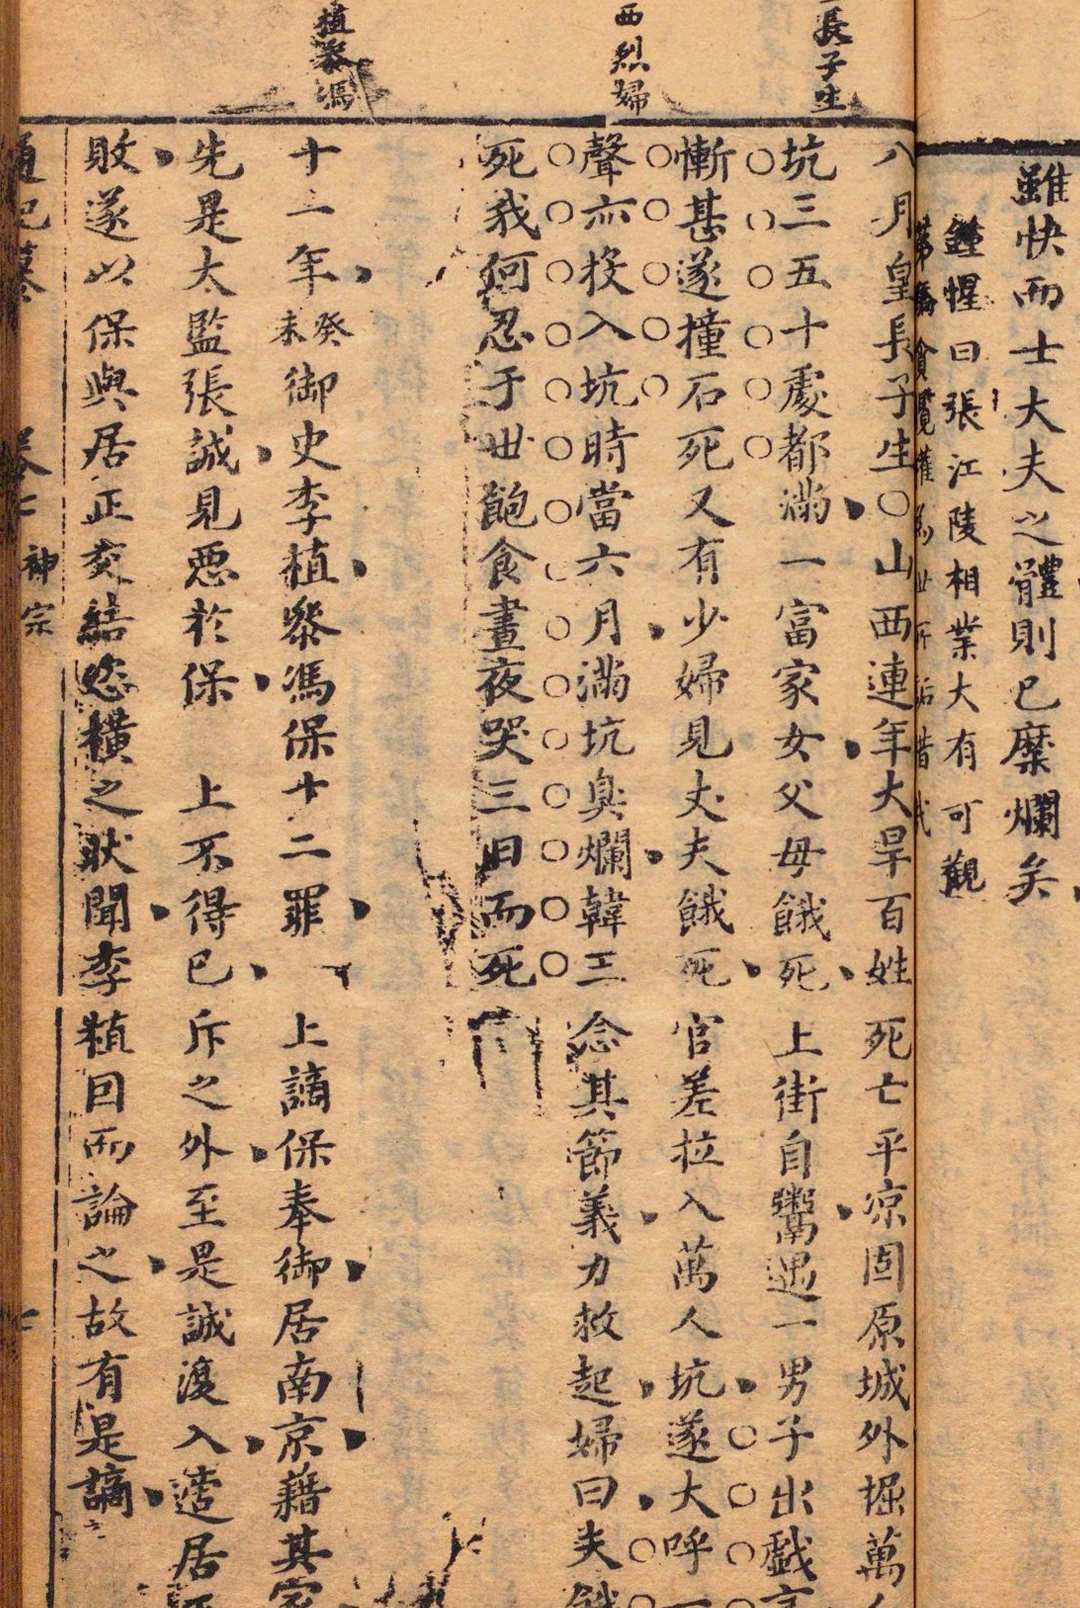 雖快而士大夫之體則已糜爛矣
鍾惺曰張江陵相業大有可觀
長子生
西烈婦
植參馮
八月皇長子生○山西連年大旱百姓死亡平凉固原城外掘萬
坑三五十處都滿一富家女父母餓死上街自鬻遇一男子出戲言
慚甚遂撞石死又有少婦見丈夫餓死官差拉入萬人坑遂大呼一
聲亦投入坑時當六月滿坑臭爛韓三念其節義力救起婦曰夫餓
死我何忍于世飽食晝夜哭三日而死
十一年癸未御史李植參馮保十二罪 上謫保奉御居南京藉其家
先是大監張誠見惡於保 上不得已斥之外至是誠復入遂居
敗遂以保與居正交結恣橫之狀聞李植回而論之故有是謫
通紀
卷七 神宗
七